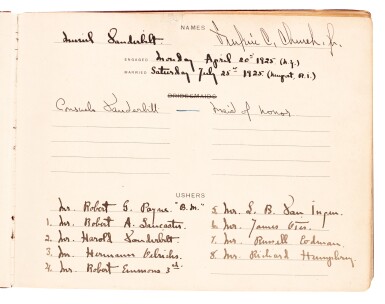 NAMES
Muriel Vanderbilt. Frederic C. Church, Jr.
ENGAGED Monday April 20th 1925 (N.Y.)
MARRIED Saturday July 25th 1925 (Newport. R.I.)
BRIDESMAIDS
Consuelo Vanderbilt maid of honor
USHERS
Mr. Robert G. Payne "B.M."
1. Mr. Robert A. Lancaster
2. Mr. Harold Vanderbilt
3. Mr. Hermann Oelrichs
4. Mr. Robert Emmons 3rd.
5. Mr. L. B. Van Ingen.
6. Mr. James
7. Mr. Russell Codman.
8. Mr. Richard Humphrey